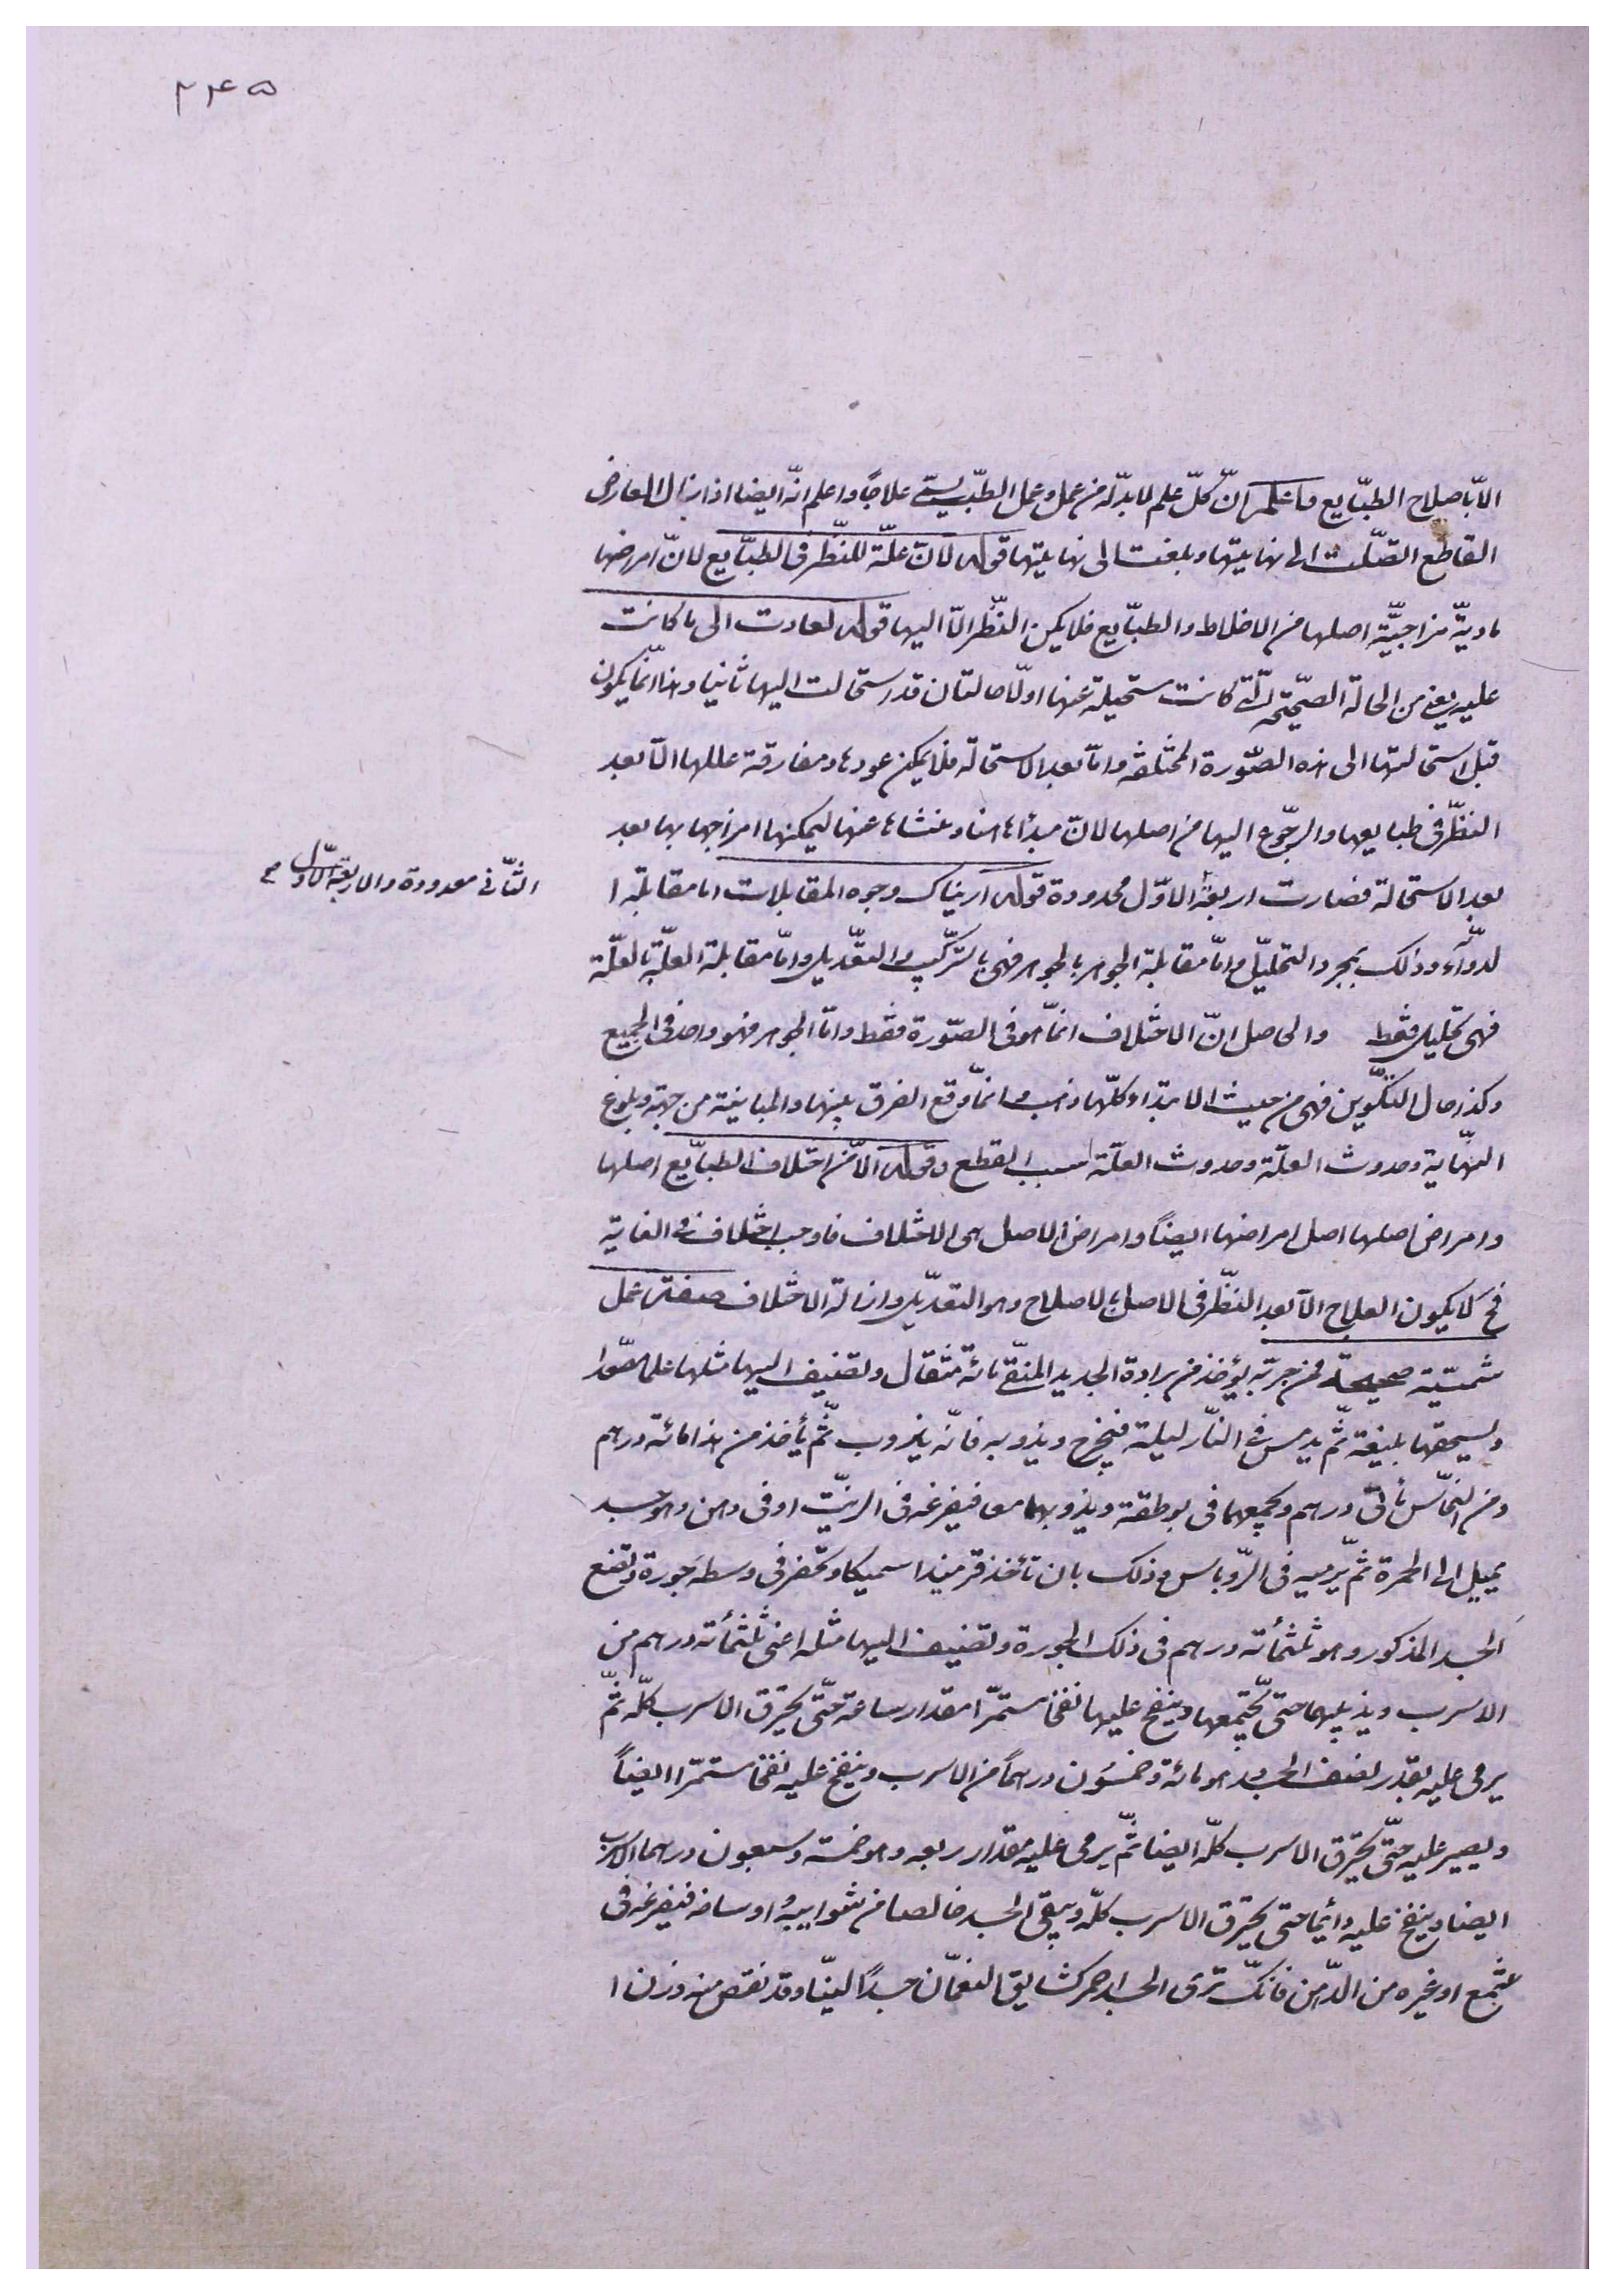 ۲۴۵
الّا باصلاح الطبّايع فاعلم انّ كلّ علم لا بدّ له من عمل وعمل الطبّ يسمّى علاجًا واعلم انّه ايضا اذا زال العارض
القاطع اتّصلت الى نهايتها وبلغت الى نهايتها قوله لانّ علّة للنّظر فى الطبّايع لانّ امراضها
ماديّة مزاجيّة اصلها من الاخلاط والطبّايع فلا يمكن النّظر الّا اليها قوله لعادت الى ما كانت
عليه يعنى من الحالة الصحّيحة الّتى كانت مستحيلة عنها اولّا حالتان قد استحالت اليها ثانيا وهذا انّما يكون
قبل استحالتها الى هذه الصّورة المختلفه وامّا بعد الاستحالة فلا يمكن عودها ومفارقة عللها الّا بعد
النظّر فى طبايعها والرجّوع اليها من اصلها لانّ مبدأها هنا ومنشاها عنها ليمكنها امزاجها بها بعد
بعد الاستحالة فصارت اربعة الاوّل محدودة قوله اريناك وجوه المقابلات اما مقابلة ا
الثّانى معدودة والاربعة الاوّل صح
لدوّاء وذلك بمجرد التحليّل وامّا مقابلة الجوهر بالجوهر فهى بالتركّيب والتعّديل وامّا مقابلة العلّة بالعلّة
فهى تحليل فقط والحاصل انّ الاختلاف انمّا هو فى الصّورة فقط وامّا الجوهر فهو واحد فى الجميع
وكذا حال التكّوين فهى من حيث الابتداء كلّها ذهب وانمّا وقع الفرق بينها والمباينة من جهة بلوغ
النهّاية وحدوث العلّة وحدوث العلّة سبب القطع وقوله الّا من اختلاف الطبّايع اصلها
وامراض اصلها اصل امراضها ايضاً وامراض الاصل هى الاختلاف فاوجب اختلاف فى الغاية
فح لا يكون العلاج الّا بعد النظّر فى الاصل بالاصلاح وهو التعّديل وازالة الاختلاف صفة عمل
شمسيّة صحيحة ممن جربّه يؤخذ من برادة الحديد المنقّى مائة مثقال وتضيف اليها مثلها علم الصّور
وليسحقها بليغة ثّم يدمس فى النّار ليلة فيخرج ويذوبه فانّه يذوب ثّم يأخذ من هذا مائة درهم
ومن النحّاس مأتى درهم ويجمعهما فى بوطقة ويذوبهما معا فيفرغه فى الزيّت او فى دهن وهو جسد
يميل الى الحمرة ثّم يرميه فى الروّباس وذلك بان تأخذ قرميدا سميكا وتحفر فى وسطه جورة وتضع
الجسد المذكور وهو ثلثمأئة درهم فى ذلك الجورة وتضيف اليها مثله اعنى ثلثمأئة درهم من
الاسرب ويذيبهما حتى يجّتمعها وينفخ عليها نفخا مستمرّا مقدار ساعة حتّى يحترق الاسرب كلّه ثّم
يرمى عليه بقدر نصف الجسد وهو مائة وخمسون درهماً من الاسرب وينفخ عليه نفخا مستمرّا ايضاً
ويصير عليه حتّى يحترق الاسرب كلّه ايضا ثّم يرمى عليه مقدار ربعه وهو خمسة وسبعون درهما الاسرب
ايضا وينفخ عليه دائما حتى يحترق الاسرب كلّه ويبقى الجسد خالصا من شوايبه واوساخه فيفرغه فى
شمع او غيره من الدّهن فانكّ ترى الجسد احمر كشقايق النعمّان جسداً لينّا وقد نقص منه وزن ا